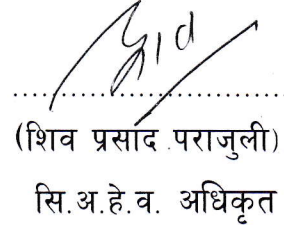 ..............................
(शिव प्रसाद पराजुली)
सि.अ.हे.व. अधिकृत